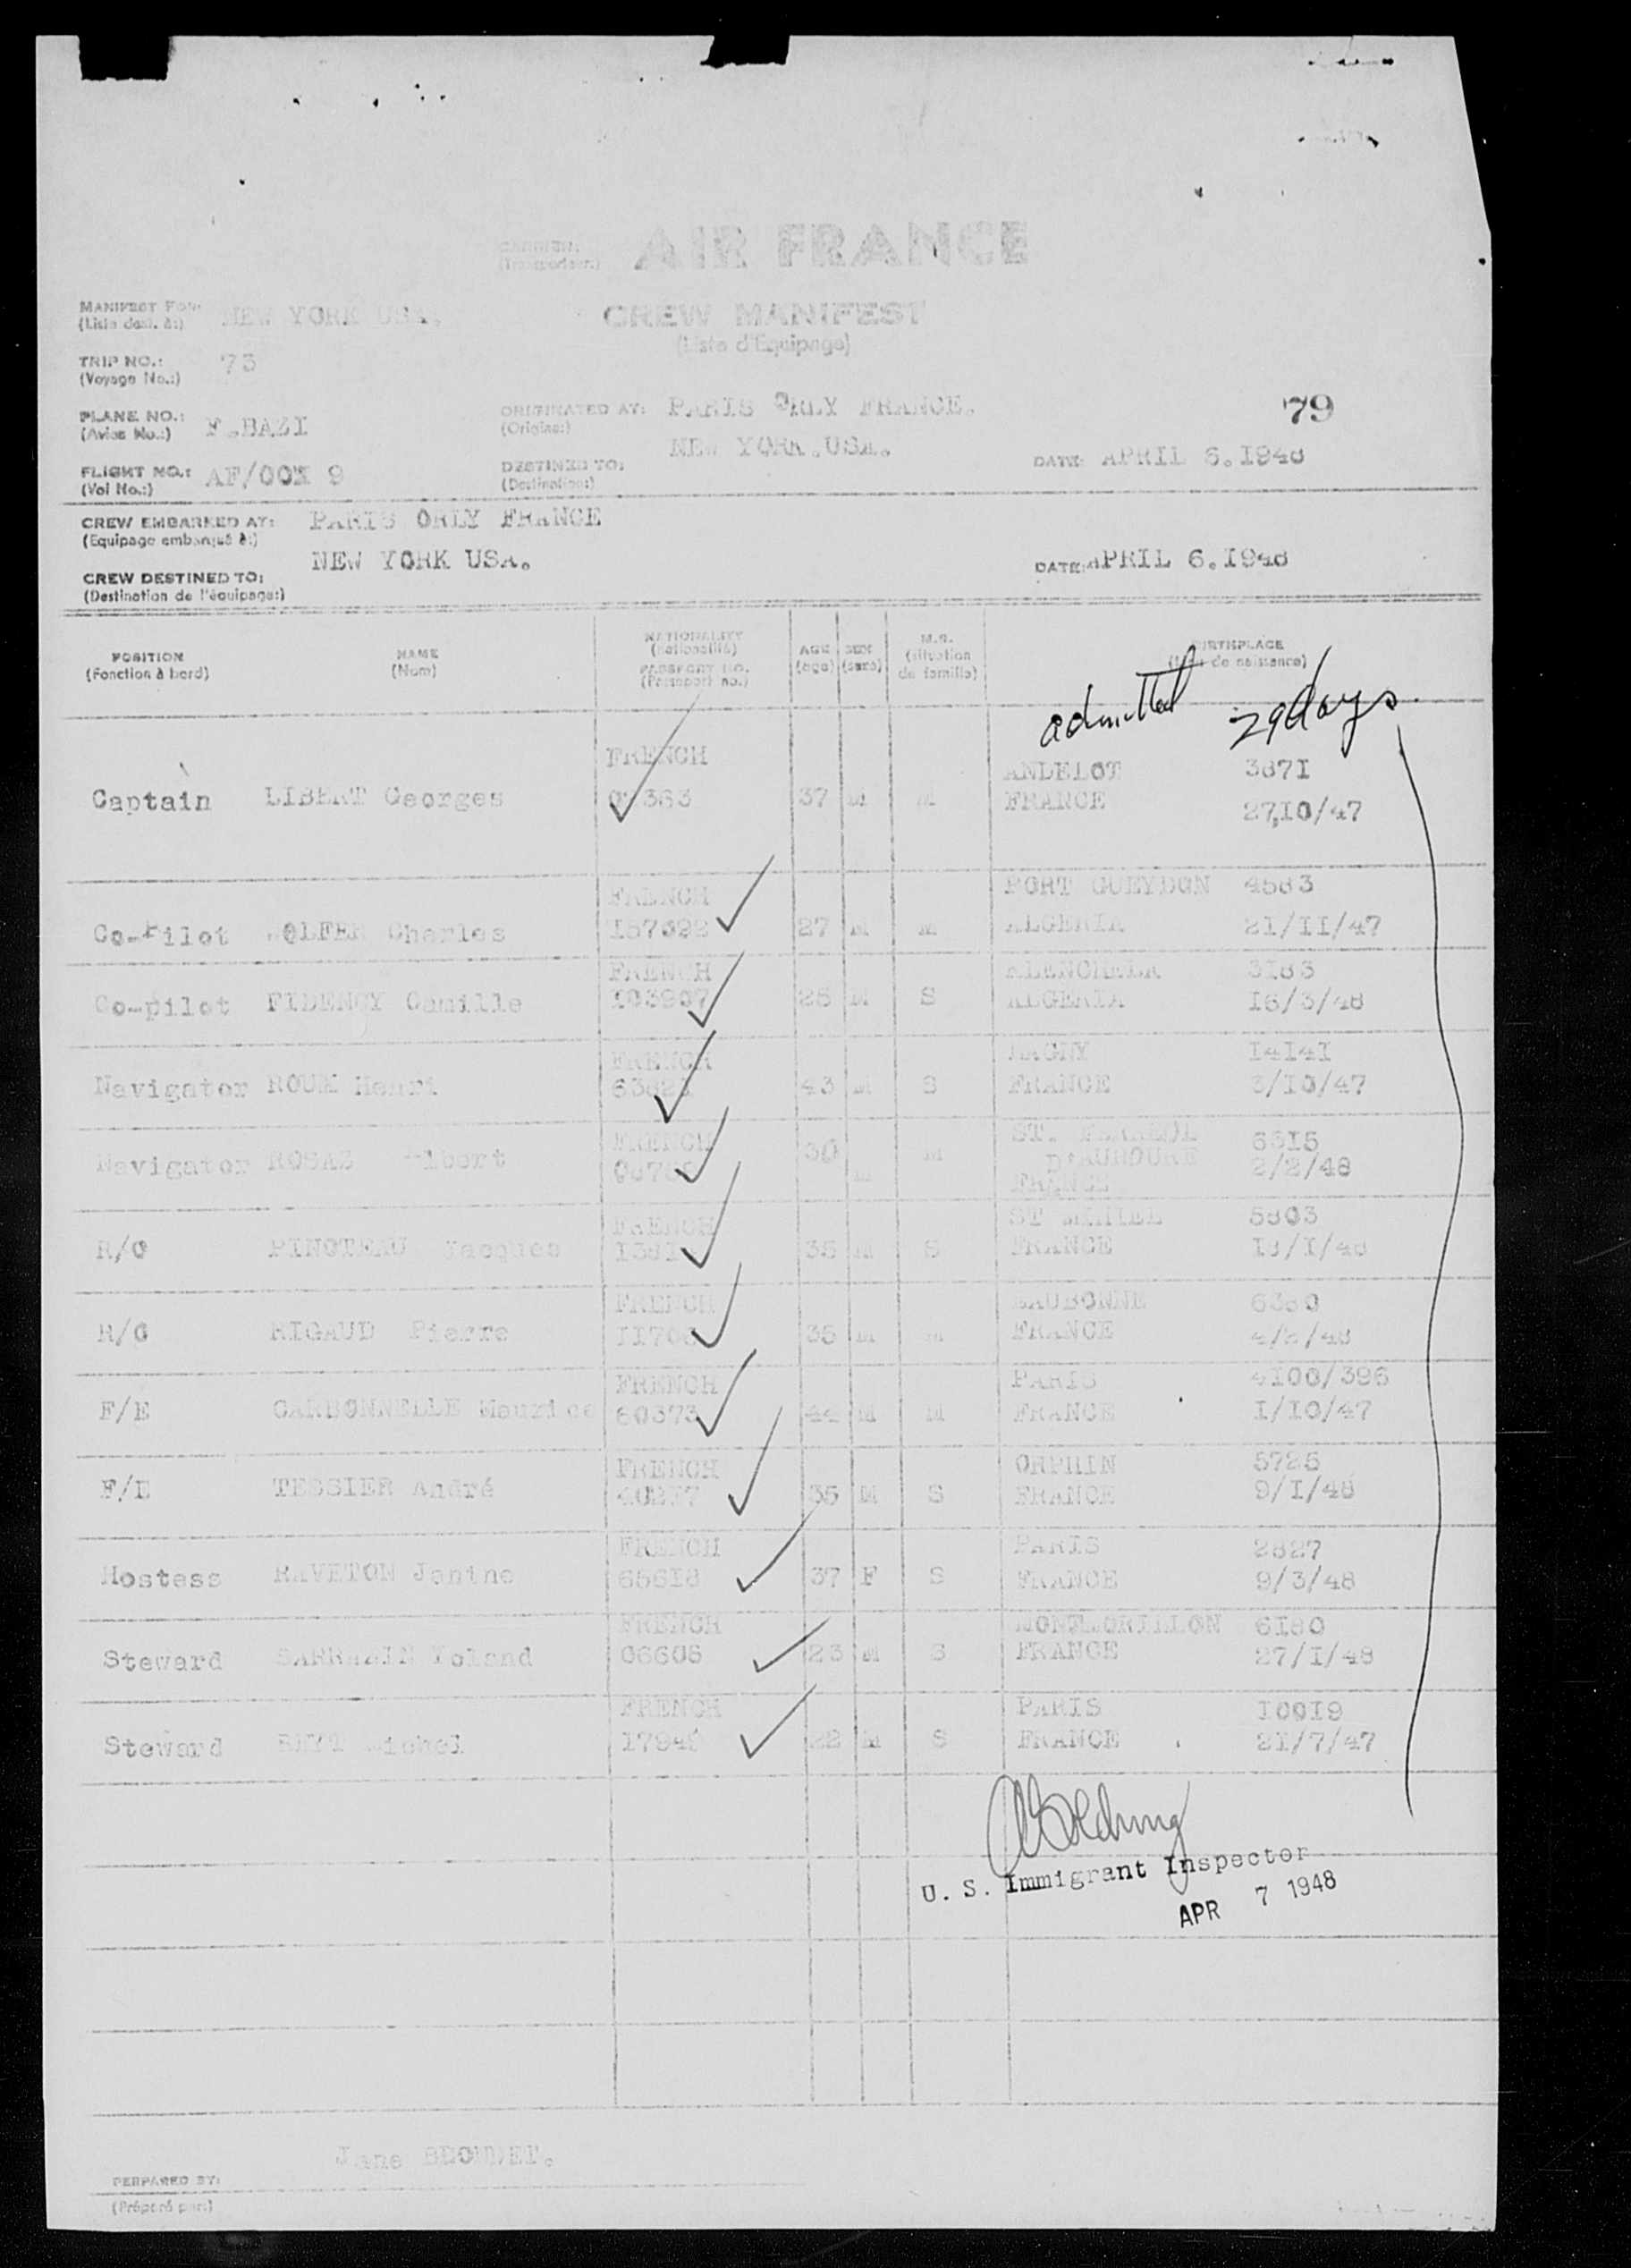 CARRIER: AIR FRANCE
(Transporteur:)
MANIFEST FOR: NEW YORK USA. CREW MANIFEST
(Liste dest. à:) (Liste d'Equipage)
TRIP NO.: 73
(Voyage No.:)
PLANE NO.: F.BAZI ORIGINATED AT: PARIS ORLY FRANCE. 79
(Avion No.:) (Origine:)
NEW YORK.USA.
FLIGHT NO.: AF/00 9 DESTINED TO: DATE: APRIL 6.1948
(Vol No.:) (Destination:)
CREW EMBARKED AT: PARIS ORLY FRANCE
(Equipage embarqué à:)
NEW YORK USA. DATE: APRIL 6.1948
CREW DESTINED TO:
(Destination de l'équipage:)
POSITION NAME NATIONALITY AGE SEX M.S. BIRTHPLACE
(Fonction à bord) (Nom) (nationalité) (age) (sexe) (situation de famille) (Lieu de naissance)
PASSPORT NO.
(Passeport no.)
admitted 29 days
FRENCH ANDELOT 3871
Captain LIBERT Georges 363 37 M M FRANCE 27,10/47
FRENCH PORT GUEYDON 4583
Co-Pilot Charles 157092 27 M M ALGERIA 21/11/47
FRENCH 3183
Co-pilot FIDENCY Camille 103907 M S ALGERIA 16/3/48
FRENCH MAGNY 14141
Navigator ROUX Henri 43 M S FRANCE 3/10/47
FRENCH ST. 6515
Navigator Albert 30 M M 2/2/48
FRANCE
FRENCH ST 5803
R/O PINOTEAU Jacques M S FRANCE
FRENCH EAUBONNE
R/O RIGAUD Pierre M M FRANCE
FRENCH PARIS 4100/396
F/E CARBONNELLE Maurice 60373 44 M M FRANCE 1/10/47
FRENCH ORPHIN
F/E TESSIER André 40277 M S FRANCE 9/1/48
FRENCH PARIS 2827
Hostess RAVETON Janine 65618 37 F S FRANCE 9/3/48
FRENCH MONTMORILLON 6180
Steward SARRAZIN 06606 23 M S FRANCE 27/1/48
FRENCH PARIS 10019
Steward Michel 22 M S FRANCE 21/7/47
U. S. Immigrant Inspector
APR 7 1948
Jane
PERPARED BY:
(Préparé par:)